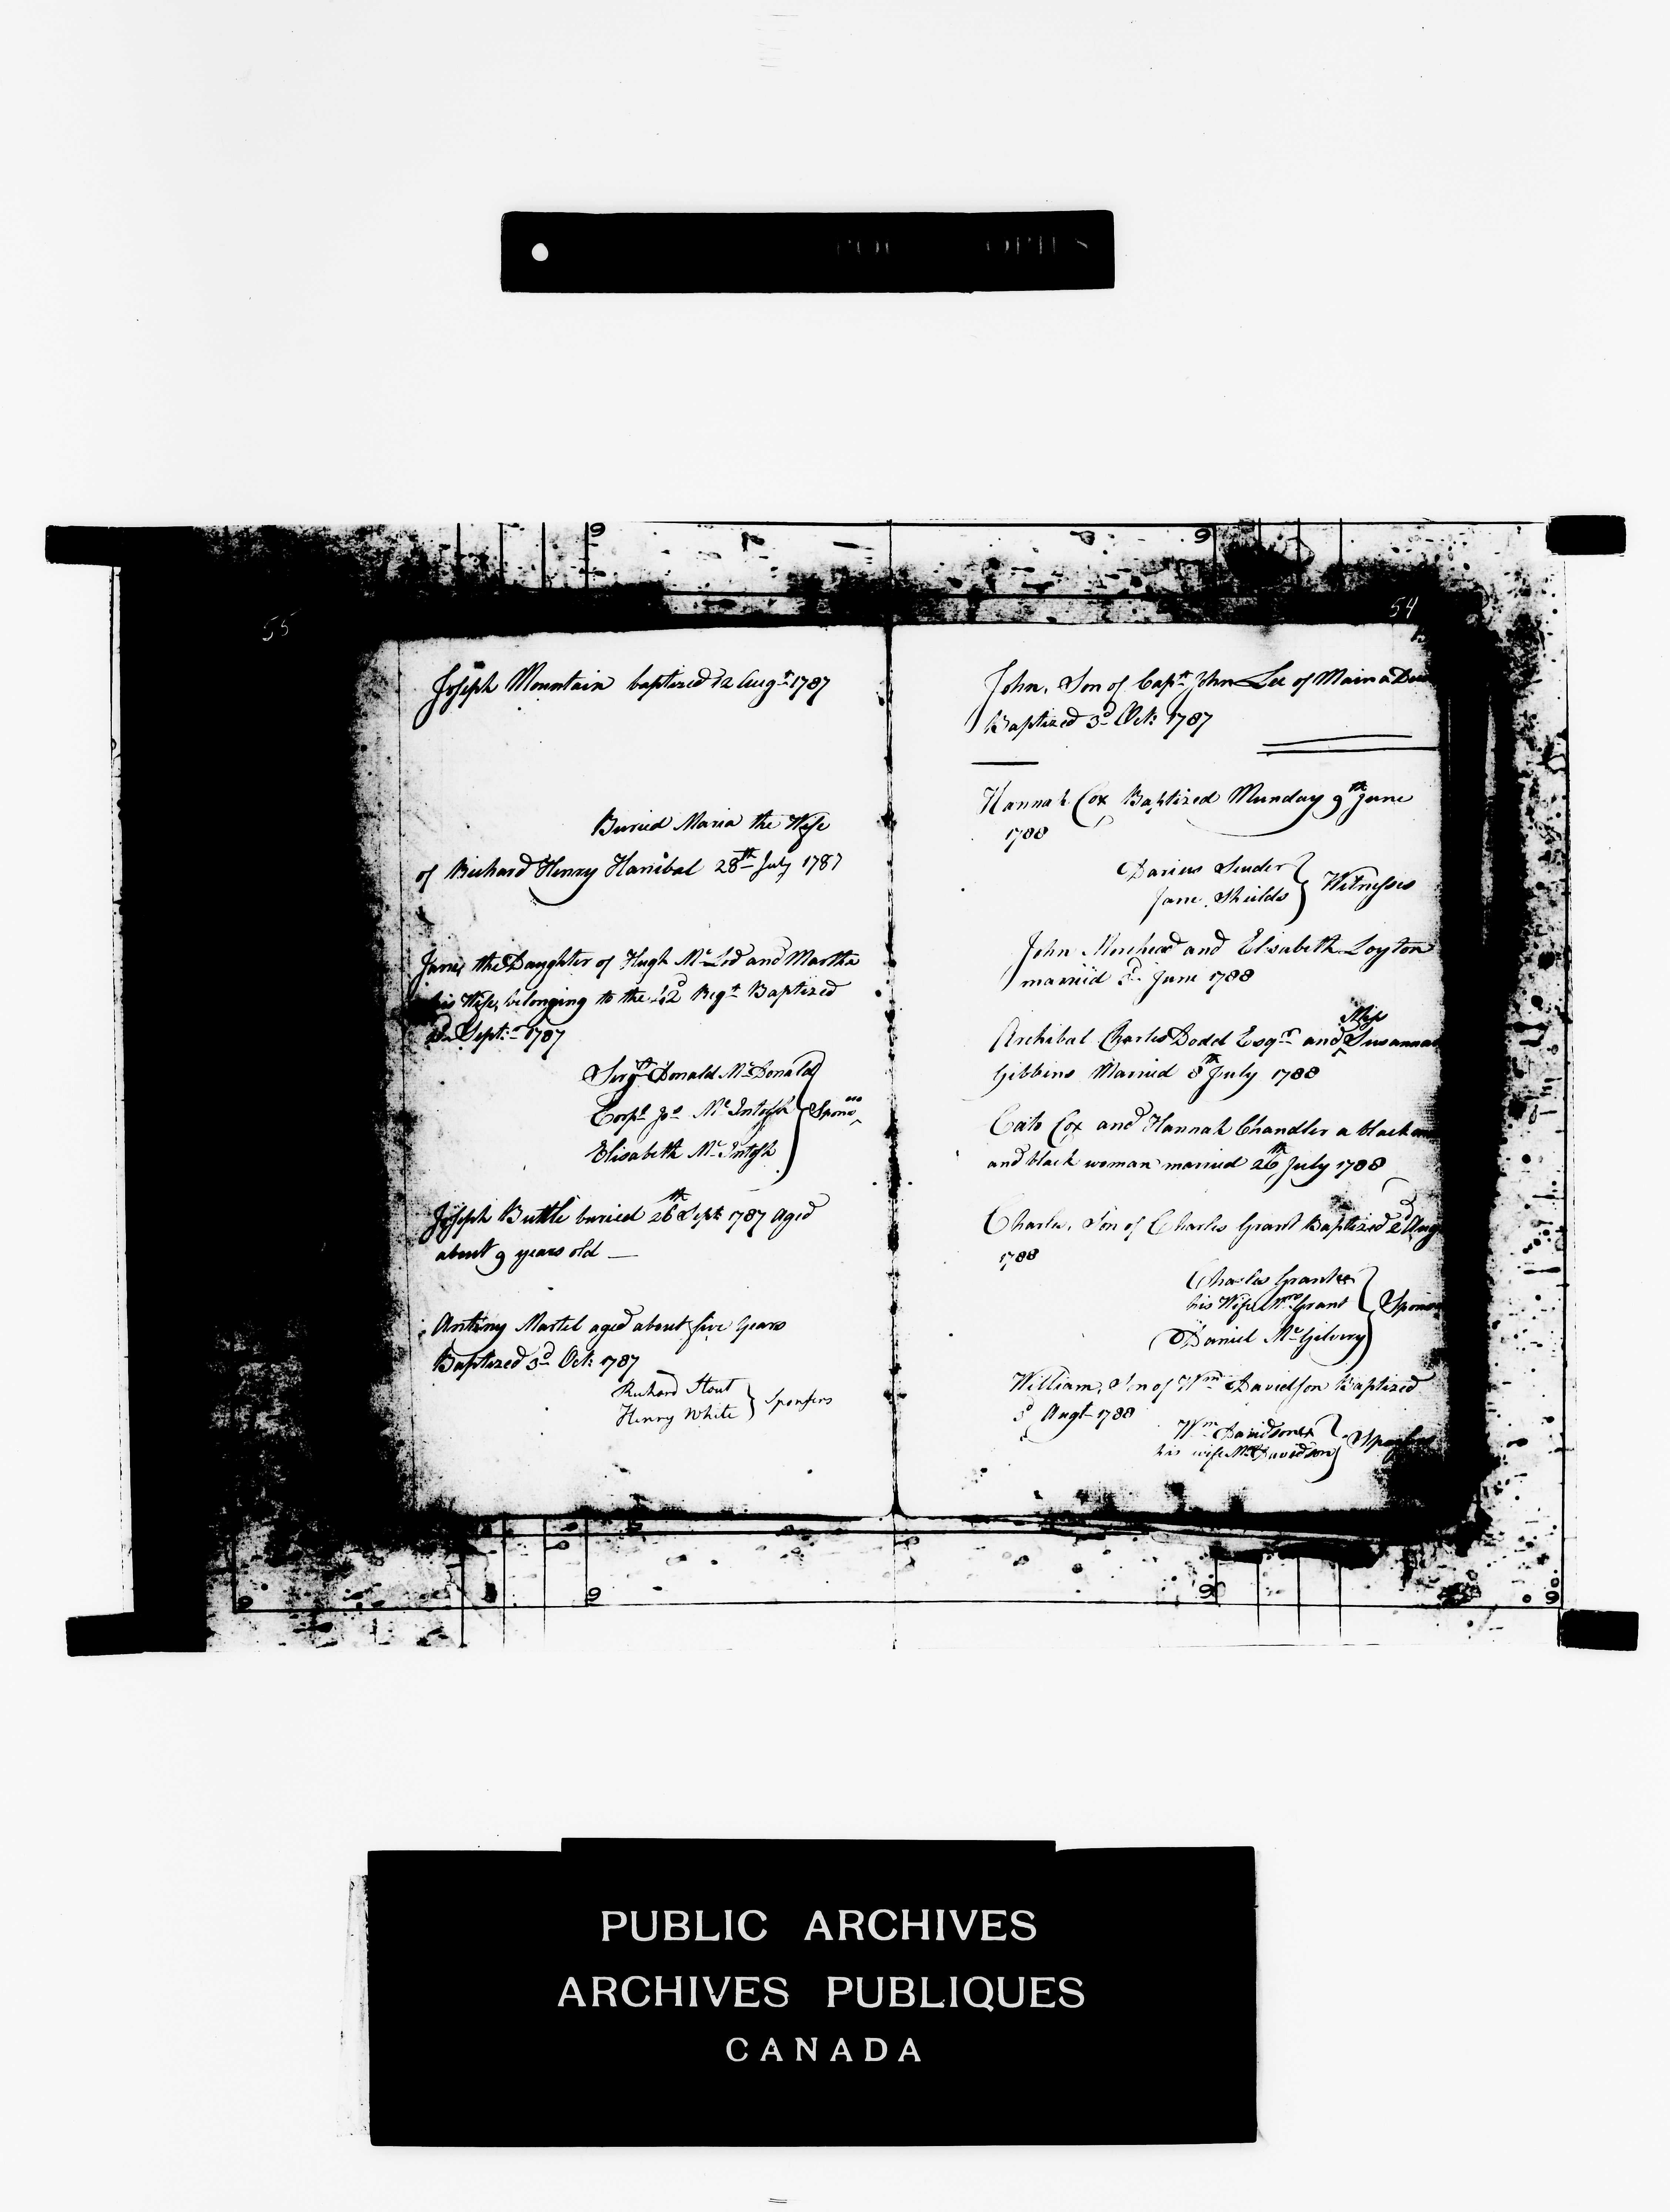 55
Joseph Mountain baptized 12 Augt 1787
Buried Maria the Wife
of Richard Henry Hanibal 28th July 1787
Jane, the Daughter of Hugh McLod and Martha
his Wife, belonging to the 42d Regt Baptized
Sept: 1787
Sergt Donald McDonald
Corpl Jno McIntosh
Elisabeth McIntosh
Joseph Buttle buried 26th Sept 1787 Aged
about 9 years old —
Antony Martel aged about five Years
Baptized 3d Oct: 1787
Richard Stout
Henry White } Sponsers
54
John, Son of Capt John Lee of Main a Dieu
Baptized 3d Oct: 1787
Hannah Cox Baptized Munday 9th June
1788
Darius Snider
Jane Shields } Witnesses
John Morhead and Elisabeth Loyton
married June 1788
Miss
Archibal Charles Dodd Esqr and ^ Susannah
Gibbins Married 8th July 1788
Cato Cox and Hannah Chandler a black
and black woman married 26th July 1788
Charles, Son of Charles Grant Baptized 3d Aug
1788
Charles Grant &
his Wife Mrs Grant
Daniel McGilvery
William, Son of Wm Davidson Baptized
3d Augt 1788
Wm Davidson &
his wife Mrs Davidson
PUBLIC ARCHIVES
ARCHIVES PUBLIQUES
CANADA